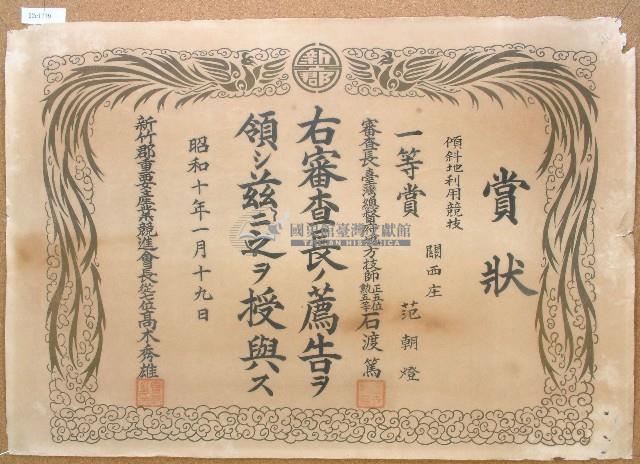 新郡
賞狀
傾斜地利用競技
關西庄 范朝燈
一等賞
審查長臺灣總督府地方技師正五位勳五等石渡篤
右審查長ノ薦告ヲ
領シ茲ニ之ヲ授與ス
昭和十年一月十九日
新竹郡重要產業競進會長從七位高木秀雄
國史館臺灣文獻館
TAIWAN HISTORICA